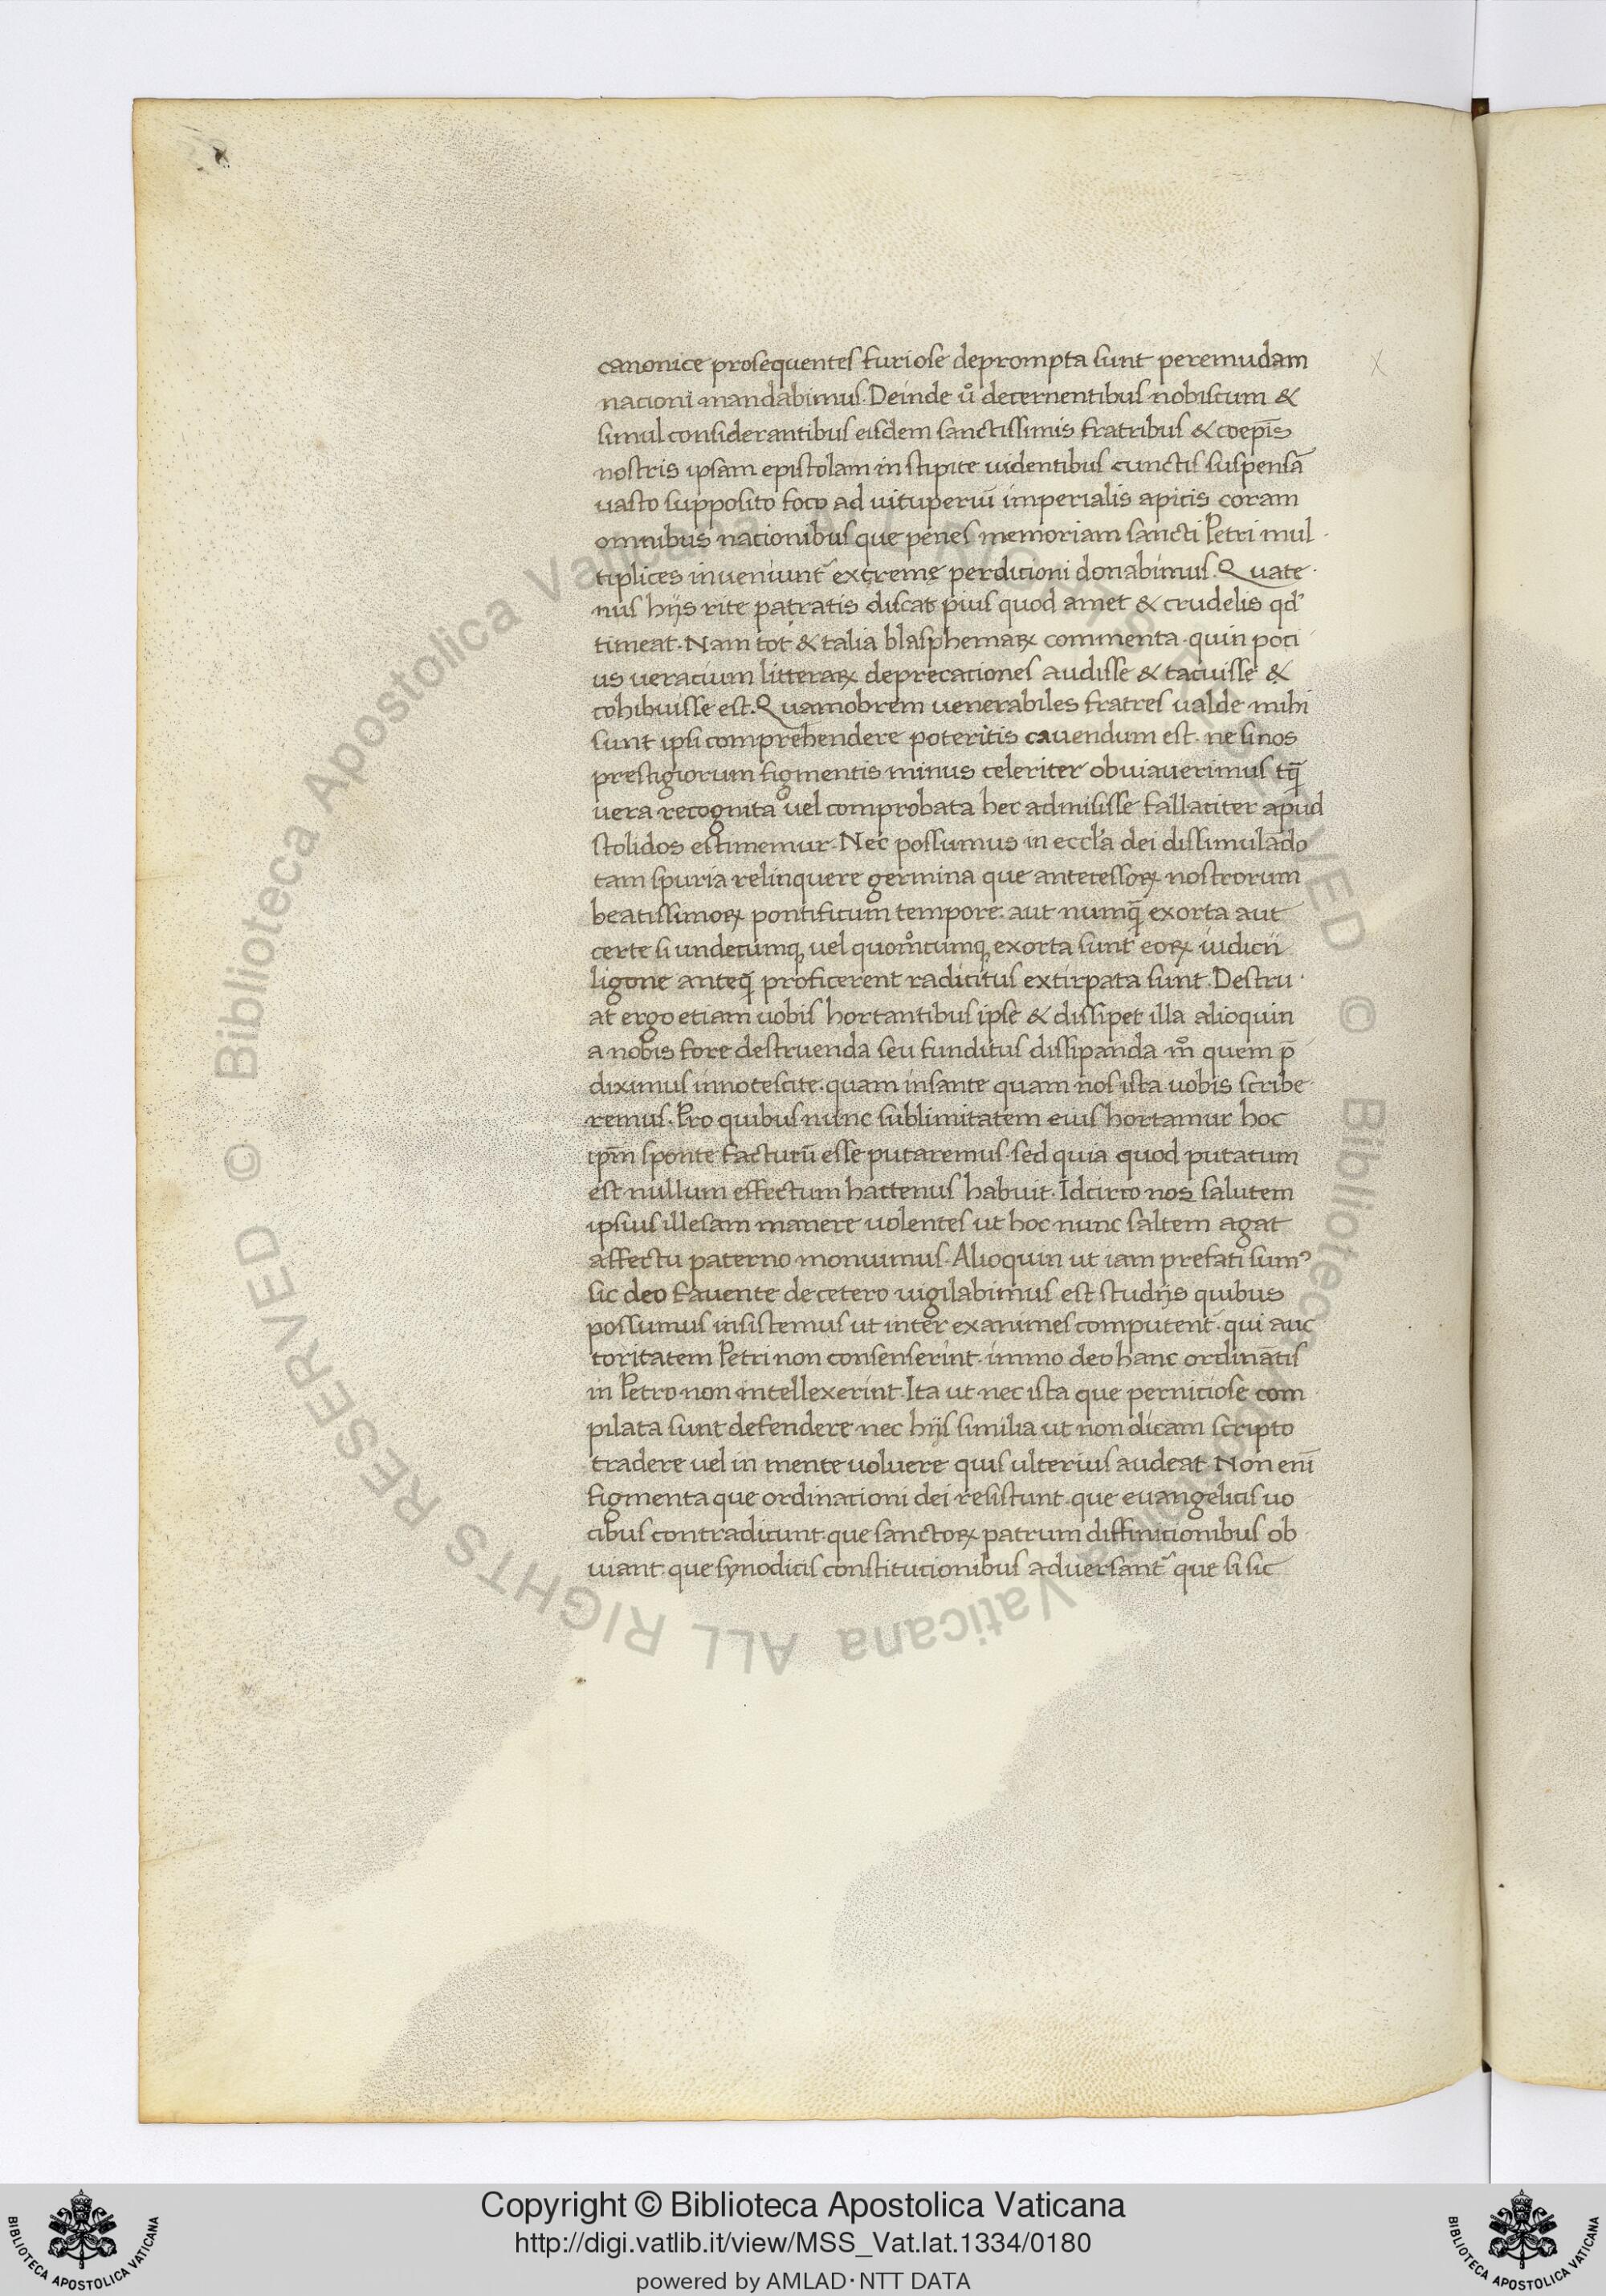 canonice prosequentes furiose deprompta sunt peremudam
nacioni mandabimus. Deinde u᷎o decernentibus nobiscum &
simul considerantibus eisdem sanctissimis fratribus & coep̄is
nostris ipsam epistolam in stipite uidentibus cunctis suspensā
uasto supposito foco ad uituperiū imperialis apicis coram
omnibus nacionibus que penes memoriam sancti Petri mul
tiplices inueniunt᷑ extremę perdicioni donabimus. Quate
nus hijs rite patratis discat pius quod amet & crudelis qd'
timeat. Nam tot & talia blasphemaꝝ commenta quin poci
us ueracium litteraꝝ deprecaciones audisse & tacuisse &
cohibuisse est. Quamobrem uenerabiles fratres ualde mihi
sunt ipsi comprehendere poteritis cauendum est. ne si nos
prestigiorum figmentis minus celeriter obuiauerimus tq̄
uera recognita uel comprobata hec admisisse fallaciter apud
stolidos estimemur. Nec possumus in eccl'a dei dissimulādo
tam spuria relinquere germina que antecessoꝝ nostrorum
beatissimoꝝ pontificum tempore. aut numq̄ exorta aut
certe si undecumq; uel quom̊cumq; exorta sunt eoꝝ iudicii
ligone anteq̄ proficerent radicitus extirpata sunt. Destru
at ergo etiam uobis hortantibus ipse & dissipet illa alioquin
a nobis fore destruenda seu funditus dissipanda m̊ quem p̄
diximus innotescite. quam insante quam nos ista uobis scribe
remus. Pro quibus nunc sublimitatem eius hortamur hoc
ip̄m sponte facturū esse putaremus. sed quia quod putatum
est nullum effectum hactenus habuit. Idcirco nos salutem
ipsius illesam manere uolentes ut hoc nunc saltem agat
affectu paterno monuimus. Alioquin ut iam prefati sumꝰ
sic deo fauente de cetero uigilabimus est studijs quibus
possumus insistemus ut inter exanimes computent᷑. qui auc
toritatem Petri non consenserint. immo deo hanc ordinātis
in Petro non intellexerint. Ita ut nec ista que perniciose com
pilata sunt defendere nec hijs similia ut non dicam scripto
tradere uel in mente uoluere quis ulterius audeat. Non eni̅
figmenta que ordinacioni dei resistunt. que euangelicis uo
cibus contradicunt. que sanctoꝝ patrum diffinicionibus ob
uiant. que synodicis constitucionibus aduersant᷑ que si sic
© Biblioteca Apostolica Vaticana ALL RIGHTS RESERVED © Biblioteca Apostolica Vaticana ALL RIGHTS RESERVED
Copyright © Biblioteca Apostolica Vaticana
http://digi.vatlib.it/view/MSS_Vat.lat.1334/0180
powered by AMLAD·NTT DATA
BIBLIOTECA APOSTOLICA VATICANA
BIBLIOTECA APOSTOLICA VATICANA